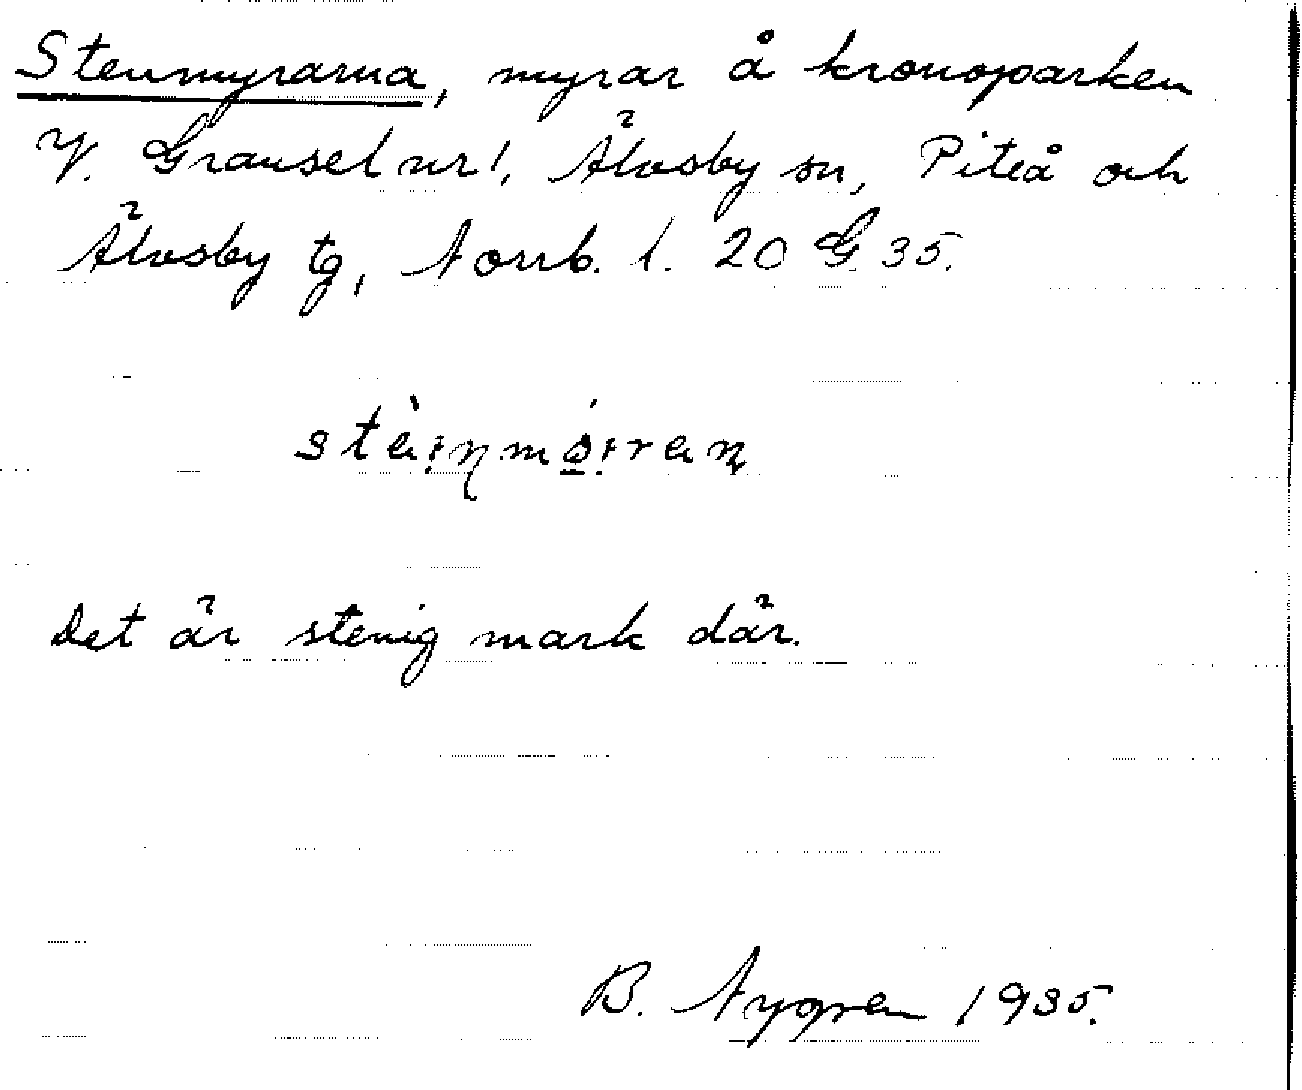 Stenmyrarna, myrar å kronoparken
V. Gransel nr 1, Älvsby sn, Piteå och
Älvsby tg, Norrb. l. 20 G 35.
Det är stenig mark där.
B. Nygren 1935.